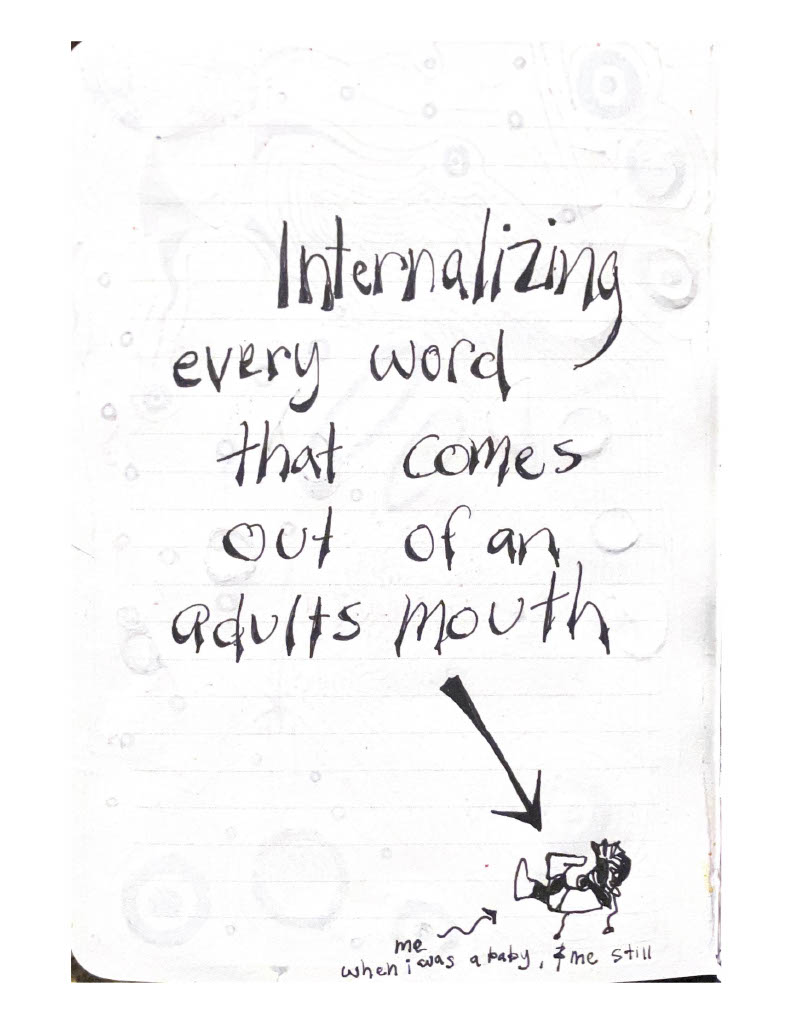 Internalizing
every word
that comes
out of an
adults mouth
me
when i was a baby, & me still